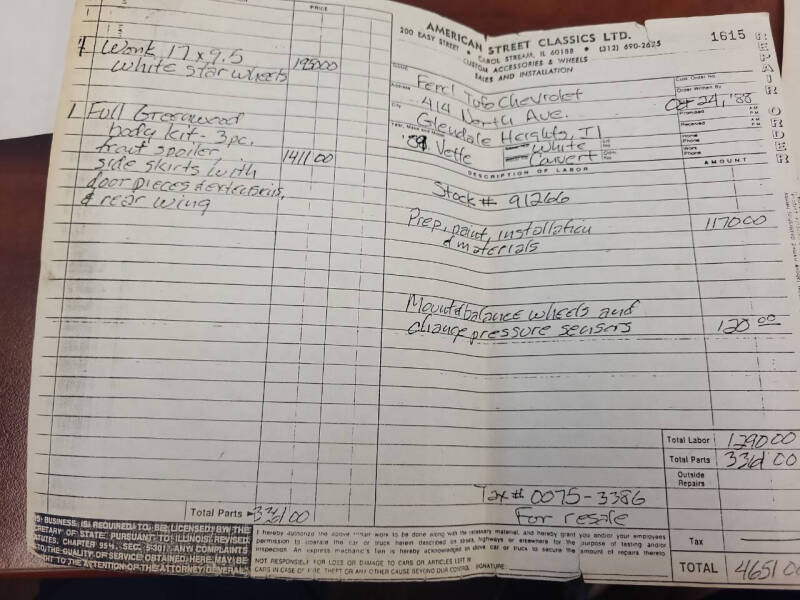 PRICE
4 Work 17x9.5 1950.00
white star wheels
1 Full Greenwood
body kit - 3pc.
front spoiler, 1411.00
side skirts with
door pieces & extensions,
& rear wing
Total Parts 3361 00
BUSINESS IS REQUIRED TO BE LICENSED BY THE
SECRETARY OF STATE PURSUANT TO ILLINOIS REVISED
STATUTES, CHAPTER 95½, SEC. 5-301. ANY COMPLAINTS
TO THE QUALITY OF SERVICE OBTAINED HERE MAY BE
TO THE ATTENTION OF THE ATTORNEY GENERAL
AMERICAN STREET CLASSICS LTD.
200 EASY STREET • CAROL STREAM, IL 60188 • (312) 690-2625
CUSTOM ACCESSORIES & WHEELS
SALES AND INSTALLATION
1615
REPAIR ORDER
Name Ferd Tufo Chevrolet
Address 414 North Ave.
City Glendale Heights, I
Year, Make and '89 Vette White
Convert
Cust. Order No.
Order Written By
24, '88
Promised A.M. P.M.
Received A.M. P.M.
Home Phone
Work Phone
DESCRIPTION OF LABOR AMOUNT
Stock # 91266
Prep, paint, installation 1170 00
& materials
Mount & balance wheels and
change pressure sensors 120 00
Total Labor 1290 00
Total Parts 3361 00
Outside Repairs
Tax # 0075-3386
For resale
Tax
TOTAL 4651 00
I hereby authorize the above repair work to be done along with the necessary material, and hereby grant you and/or your employees
permission to operate the car or truck herein described on streets, highways or elsewhere for the purpose of testing and/or
inspection. An express mechanic's lien is hereby acknowledged on above car or truck to secure the amount of repairs thereto
NOT RESPONSIBLE FOR LOSS OR DAMAGE TO CARS OR ARTICLES LEFT IN
CARS IN CASE OF FIRE, THEFT OR ANY OTHER CAUSE BEYOND OUR CONTROL SIGNATURE